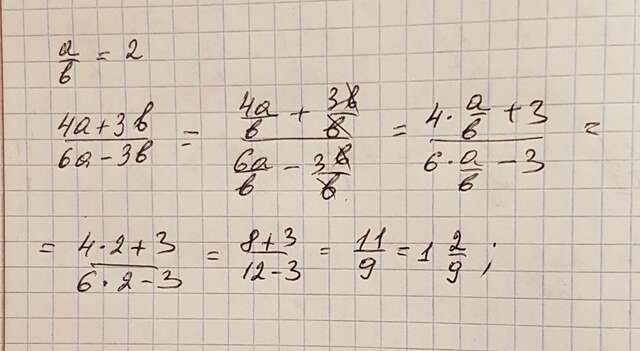 a/b = 2
(4a+3b)/(6a-3b) = (4a/b + 3b/b)/(6a/b - 3b/b) = (4·a/b + 3)/(6·a/b - 3) =
= (4·2+3)/(6·2-3) = (8+3)/(12-3) = 11/9 = 1 2/9;